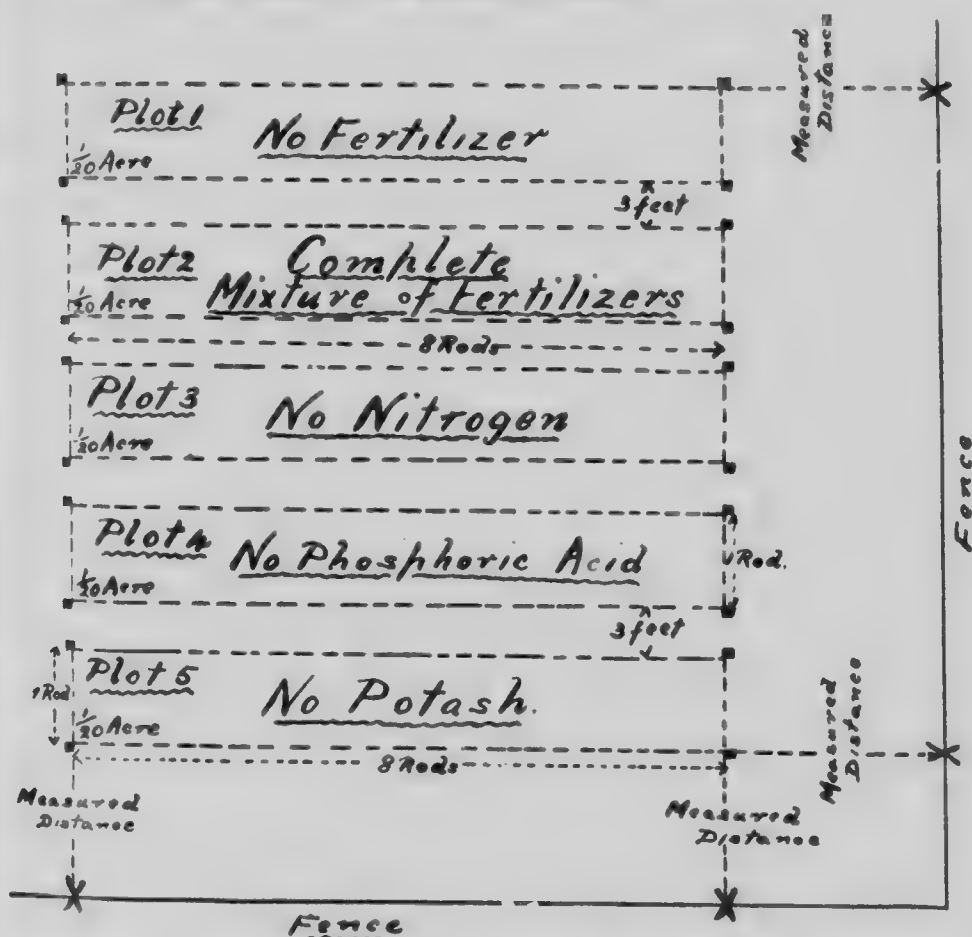 Measured
Distance
Plot 1
No Fertilizer
1/20 Acre
3 feet
Plot 2
Complete
Mixture of Fertilizers
1/20 Acre
8 Rods
Plot 3
No Nitrogen
1/20 Acre
Plot 4
No Phosphoric Acid
1/20 Acre
1 Rod.
3 feet
Plot 5
No Potash.
1 Rod
1/20 Acre
8 Rods
Fence
Measured
Distance
Measured
Distance
Measured
Distance
Fence